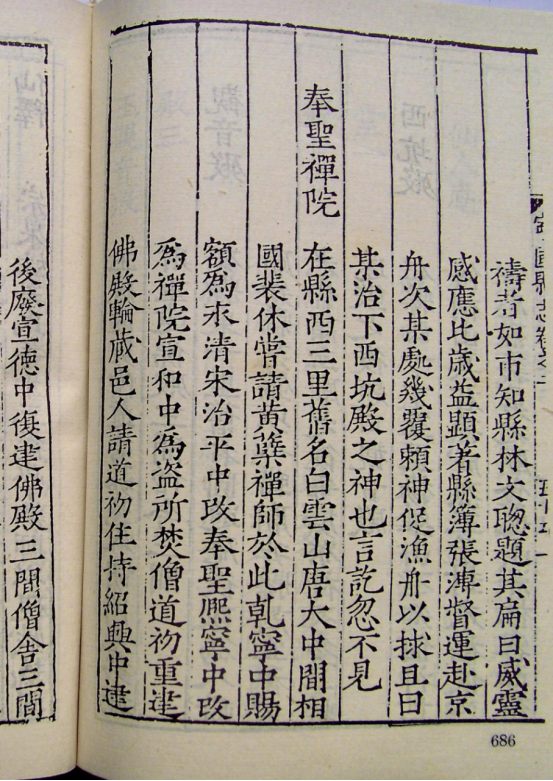 禱者如市知縣林文聰題其扁曰威靈
感應比歲益顯著縣簿張溥督運赴京
舟次某處幾覆賴神促漁舟以捄且曰
某治下西坑殿之神也言訖忽不見
奉聖禪院
在縣西三里舊名白雲山唐大中間相
國裴休嘗請黃蘗禪師於此乾寧中賜
額爲永清宋治平中改奉聖熈寧中改
爲禪院宣和中爲盗所焚僧道初重建
佛殿輪蔵邑人請道初住持紹興中建
後廢宣德中復建佛殿三間僧舎三間
686